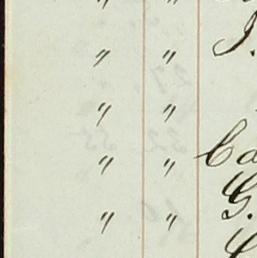 " "
" " J.
" "
" " Ca
" " G.